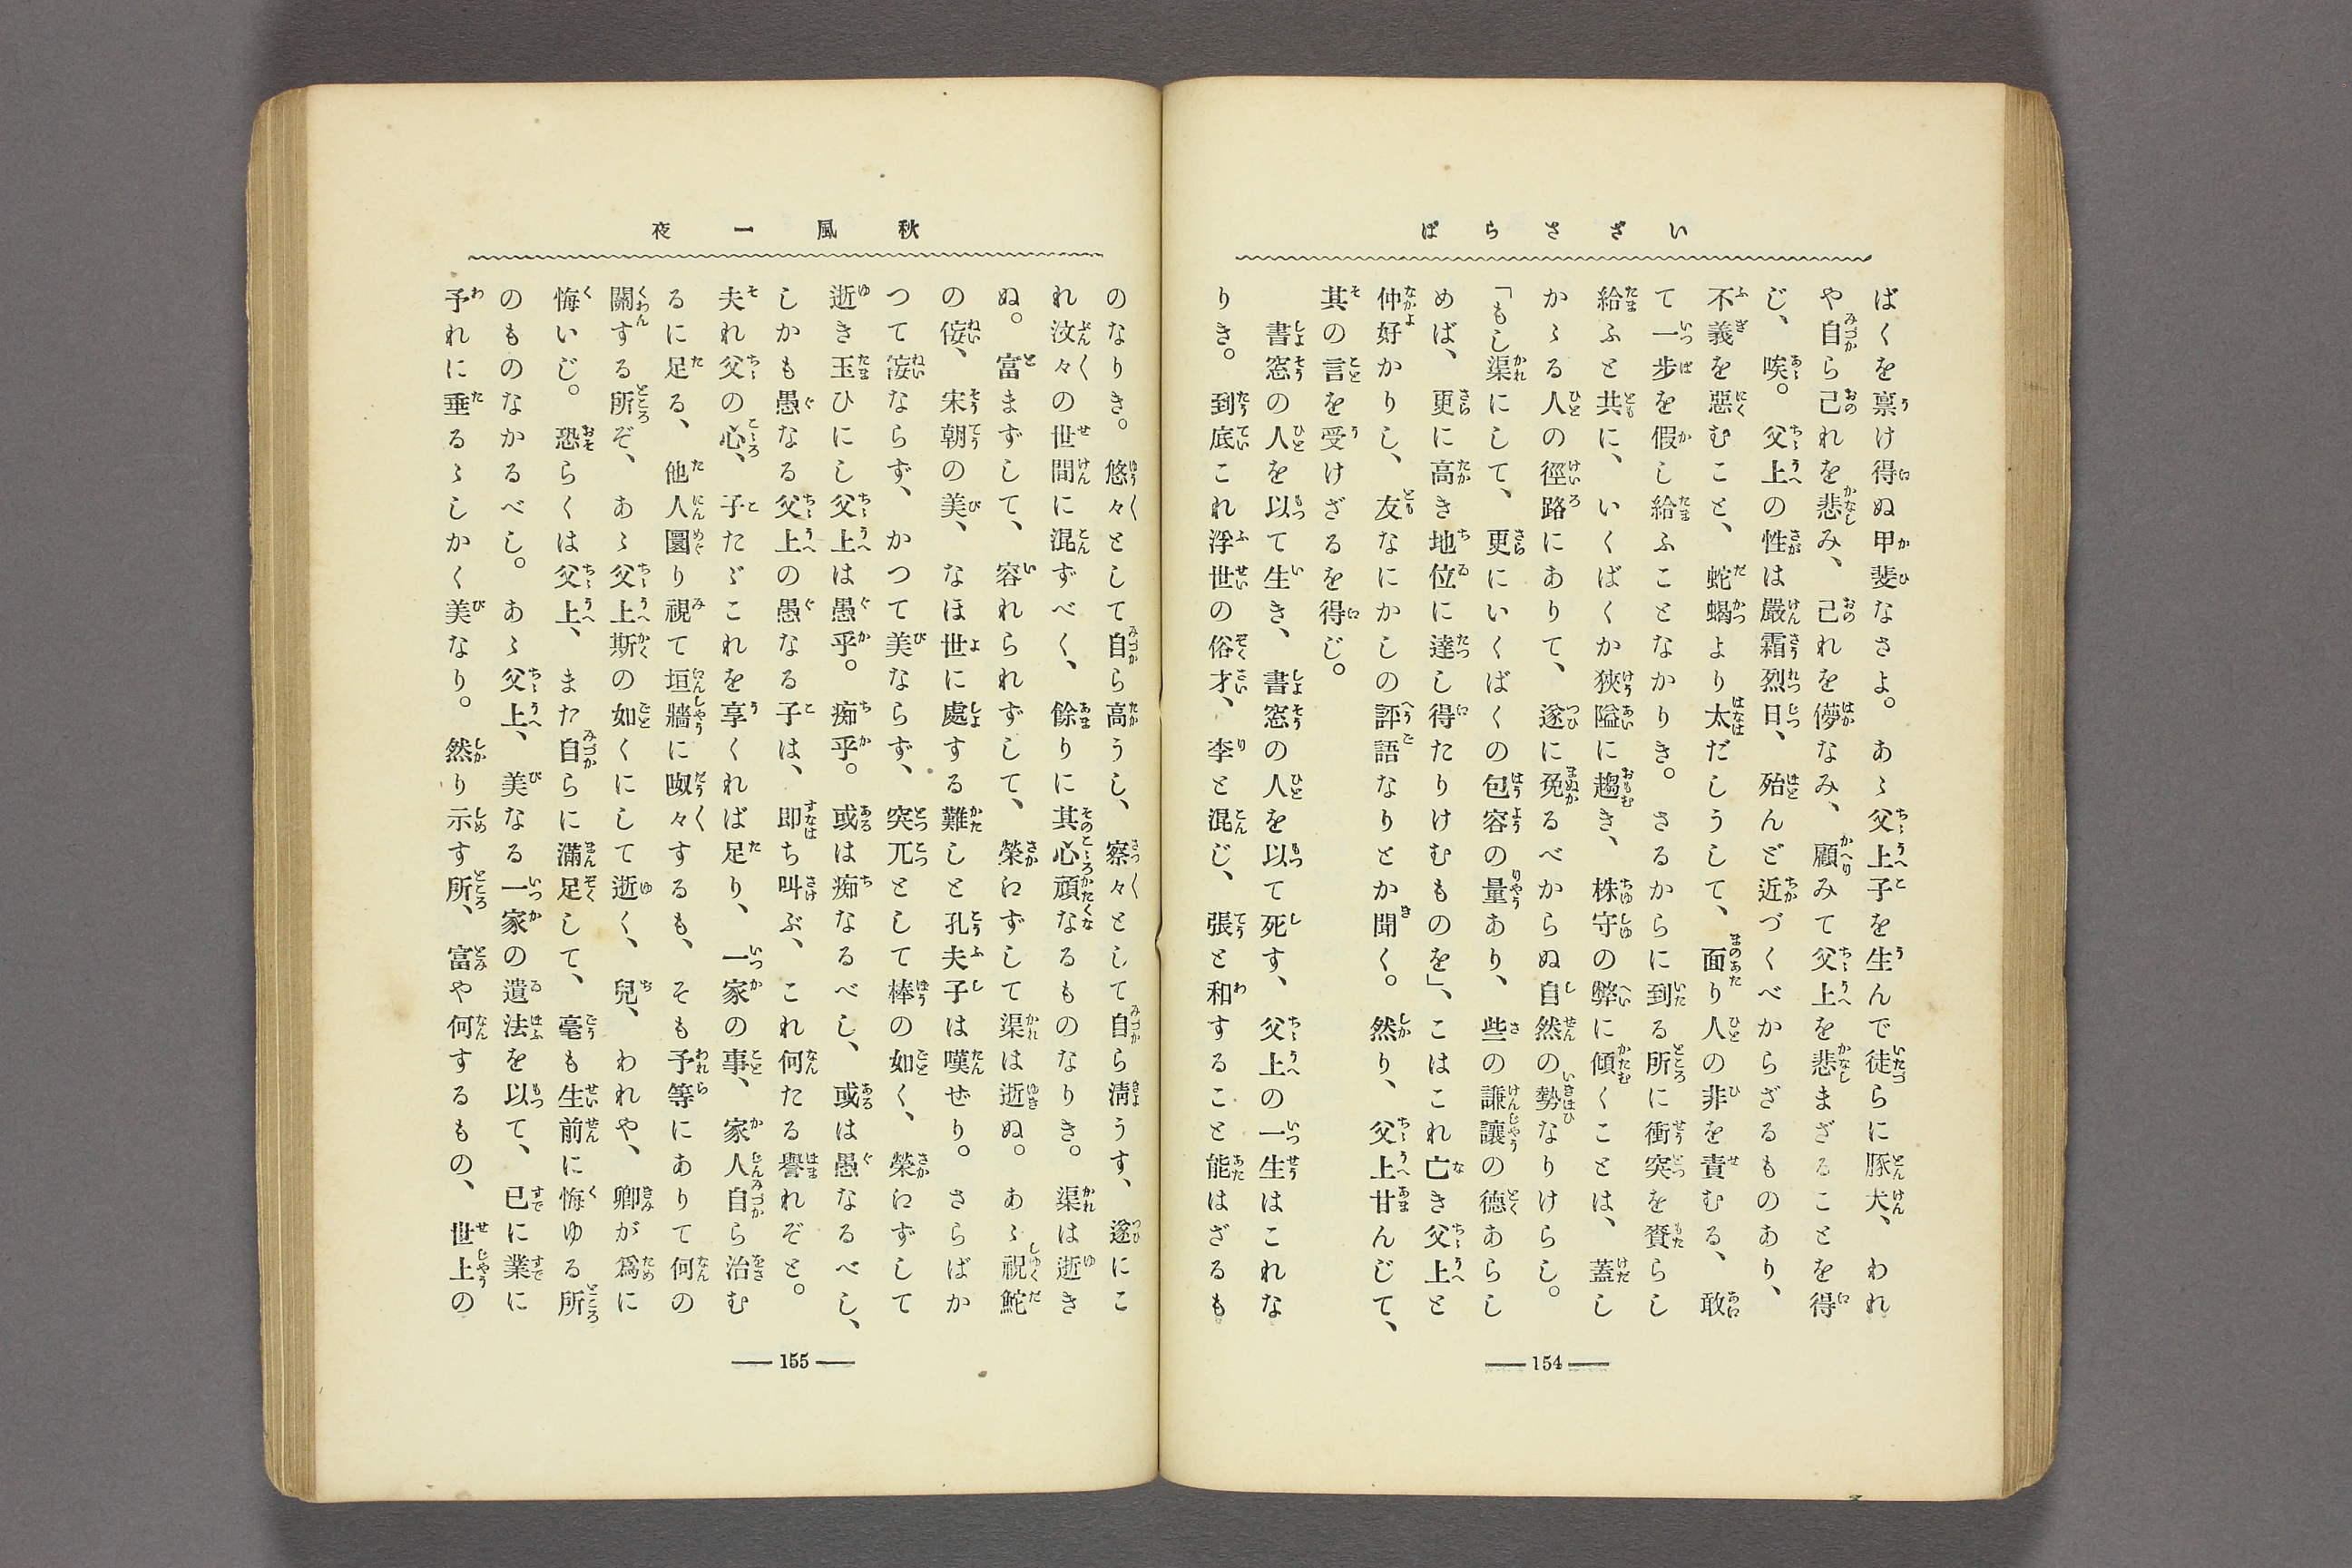 いざさらば
ばくを稟け得ぬ甲斐なさよ。あゝ父上子を生んで徒らに豚犬、われ
や自ら己れを悲み、己れを儚なみ、顧みて父上を悲まざることを得
じ、唉。父上の性は嚴霜烈日、殆んど近づくべからざるものあり、
不義を惡むこと、蛇蝎より太だしうして、面り人の非を責むる、敢
て一步を假し給ふことなかりき。さるからに到る所に衝突を賚らし
給ふと共に、いくばくか狹隘に趨き、株守の弊に傾くことは、蓋し
かゝる人の徑路にありて、遂に免るべからぬ自然の勢なりけらし。
「もし渠にして、更にいくばくの包容の量あり、些の謙讓の德あらし
めば、更に高き地位に達し得たりけむものを」、こはこれ亡き父上と
仲好かりし、友なにかしの評語なりとか聞く。然り、父上甘んじて、
其の言を受けざるを得じ。
書窓の人を以て生き、書窓の人を以て死す、父上の一生はこれな
りき。到底これ浮世の俗才、李と混じ、張と和することと能はざるも
154
秋風一夜
のなりき。悠々として自ら高うし、察々として自ら淸うす、遂にこ
れ汶々の世間に混ずべく、餘りに其心頑なるものなりき。渠は逝き
ぬ。富まずして、容れられずして、榮ねずして渠は逝ぬ。あゝ祝鮀
の侫、宋朝の美、なほ世に處する難しと孔夫子は嘆ぜり。さらばか
つて侫ならず、かつて美ならず、突兀として棒の如く、榮ねずして
逝き玉ひにし父上は愚乎。痴乎。或は痴なるべし、或は愚なるべし、
しかも愚なる父上の愚なる子は、卽ち叫ぶ、これ何たる譽れぞと。
夫れ父の心、子たゞこれを享くれば足り、一家の事、家人自ら治む
るに足る、他人圜り視て垣牆に呶々するも、そも予等にありて何の
關する所ぞ、あゝ父上斯の如くにして逝く、兒、われや、卿が爲に
悔いじ。恐らくは父上、また自らに滿足して、毫も生前に悔ゆる所
のものなかるべし。あゝ父上、美なる一家の遺法を以て、已に業に
予れに垂るゝしかく美なり。然り示す所、富や何するもの、世上の
155